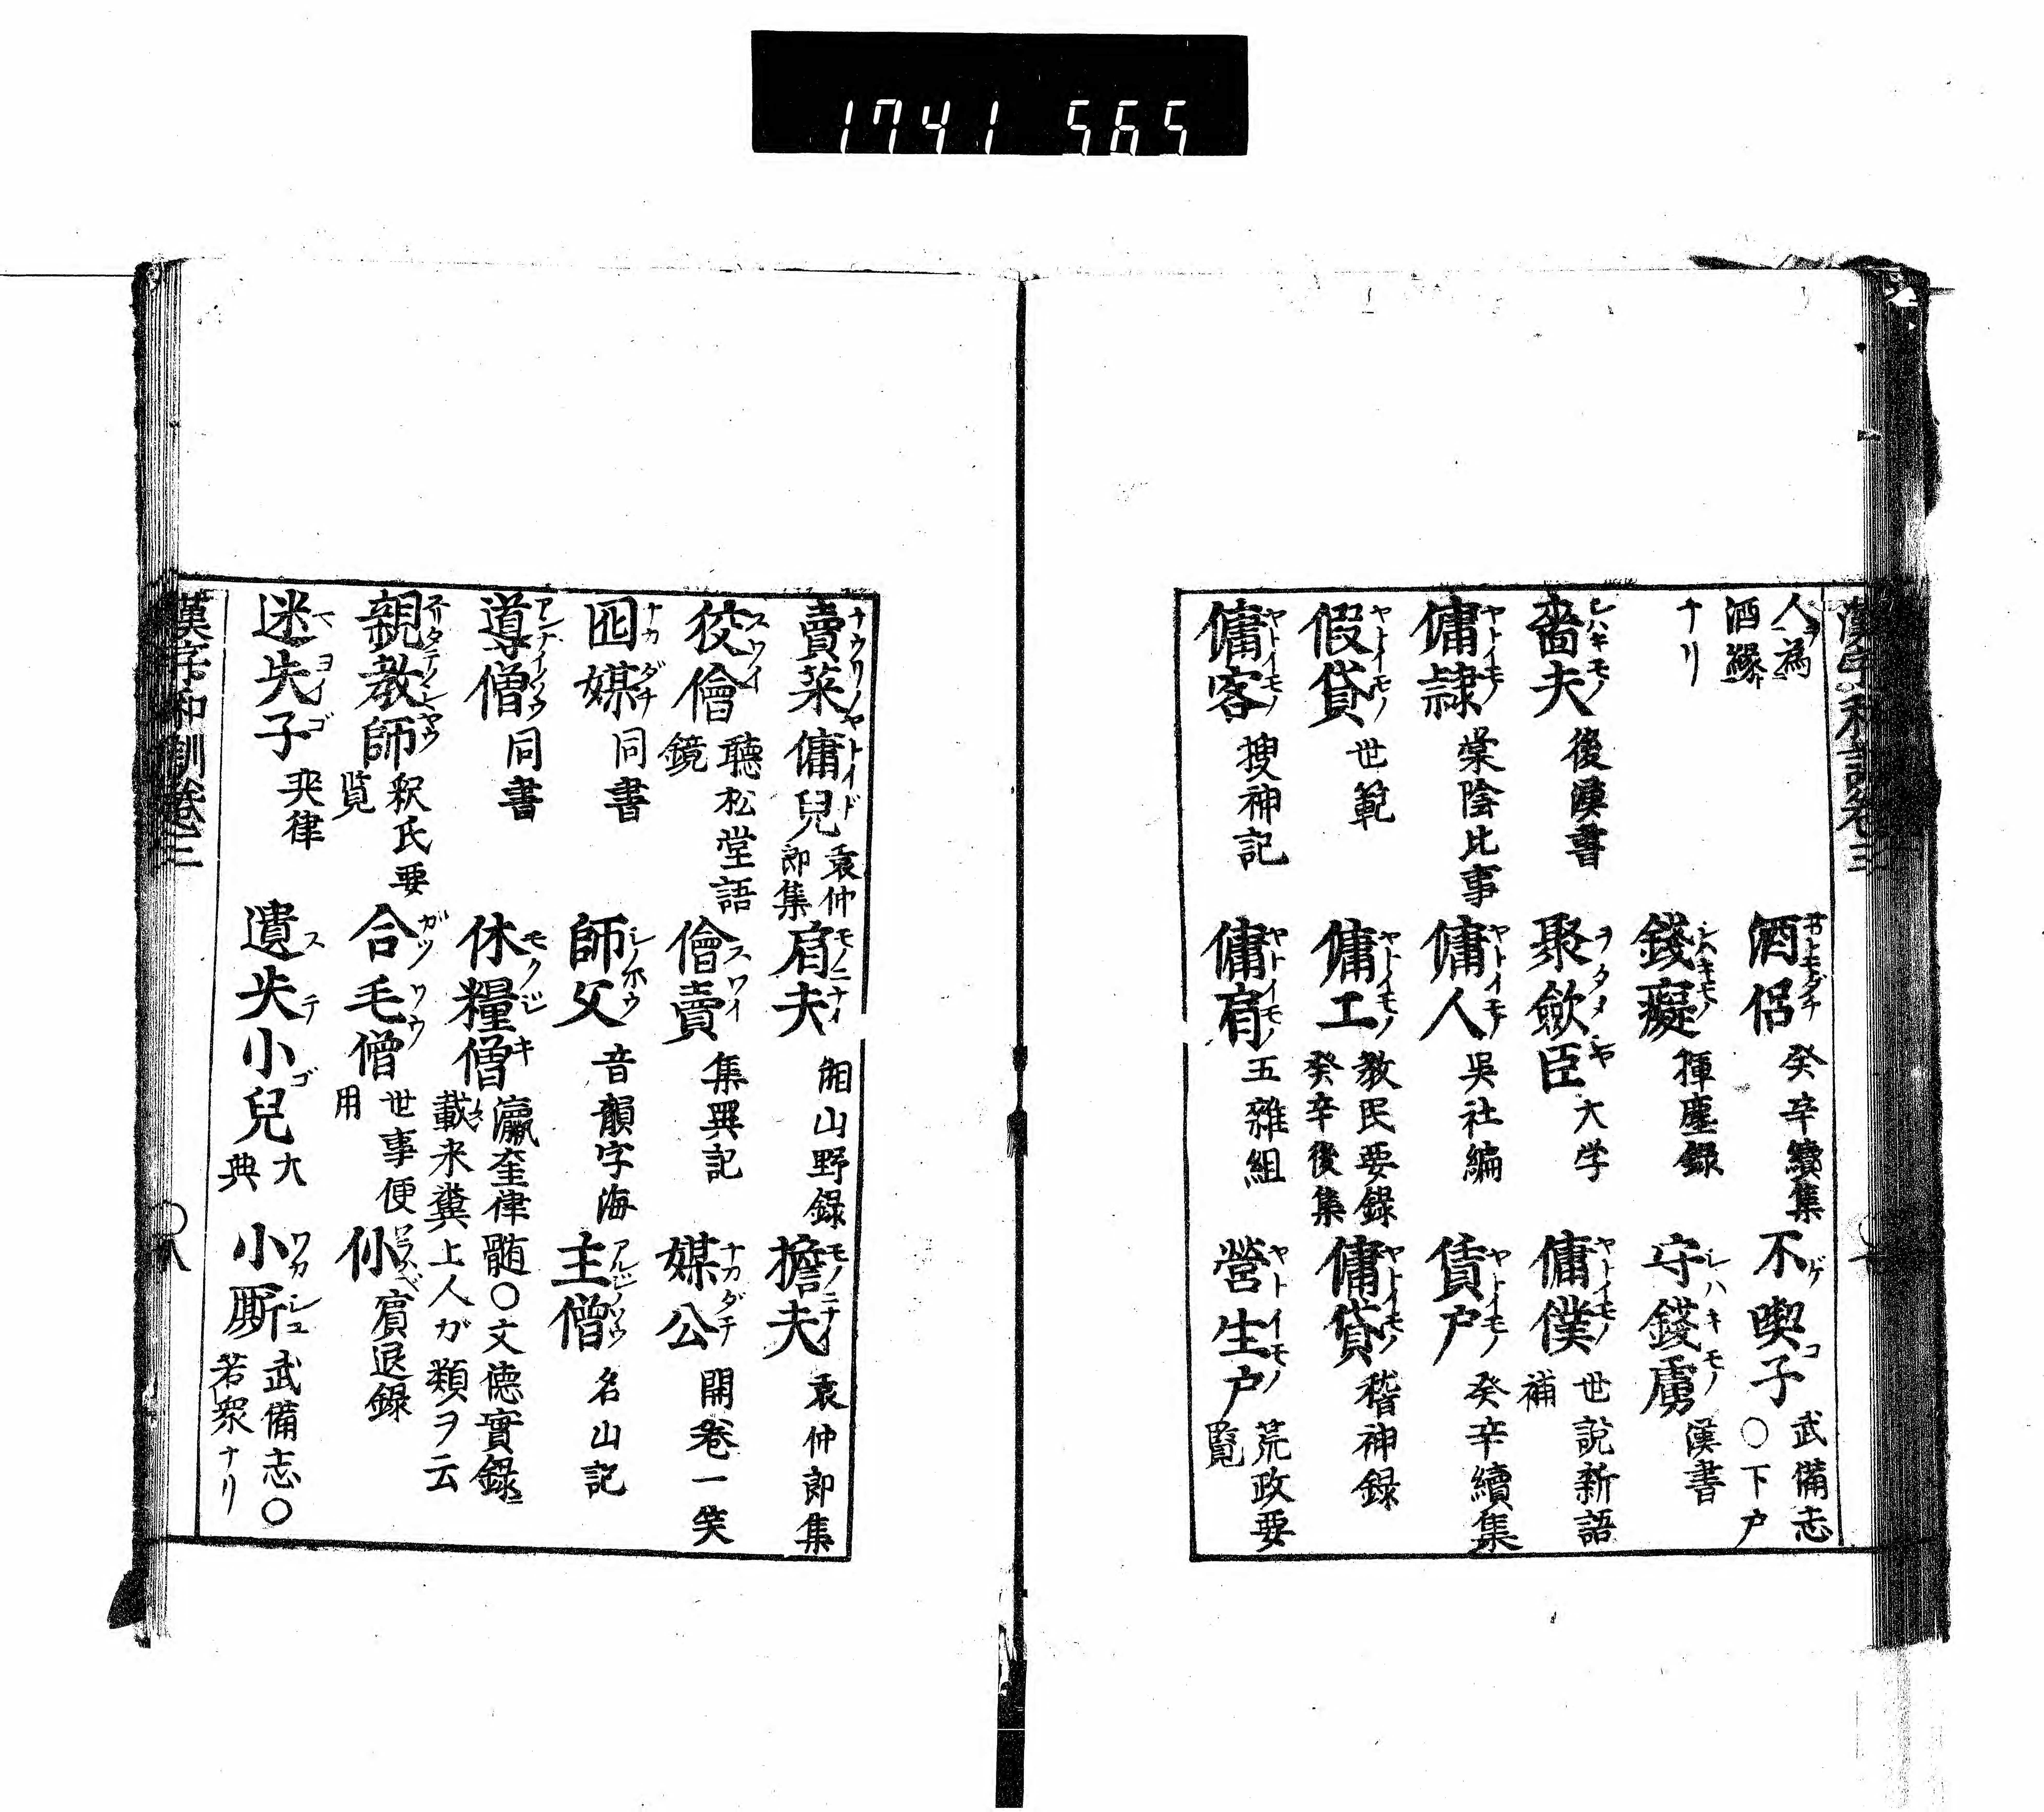 1741 565
漢字和訓卷三
人ヲ為
酒縁ト
ナリ
酒侶 癸辛續集
不喫子 武備志
〇下戸
錢癡 揮麈録
守錢虜 漢書
嗇夫 後漢書
聚斂臣 大学
傭僕 世説新語
補
傭隷 棠陰比事
傭人 吳社編
賃戸 癸辛續集
假貸 世範
傭工 教民要録
癸辛後集
傭貸 稽神録
傭客 搜神記
傭肩 五雜組
營生户 荒政要
覧
賣菜傭兒 袁仲
郎集
肩夫 湘山野録
擔夫 袁仲郎集
狡儈 聽松堂語
鏡
儈賣 集異記
媒公 開卷一笑
囮媒 同書
師父 音韻字海
主僧 名山記
導僧 同書
休糧僧 瀛奎律髄〇文徳實録ニ
載米糞上人ガ類ヲ云
親教師 釈氏要
覧
合毛僧 世事便
用
仦 賓退録
迷失子 奕律
遺失小兒 大
典
小厮 武備志〇
若衆ナリ
漢字和訓卷三
〇八